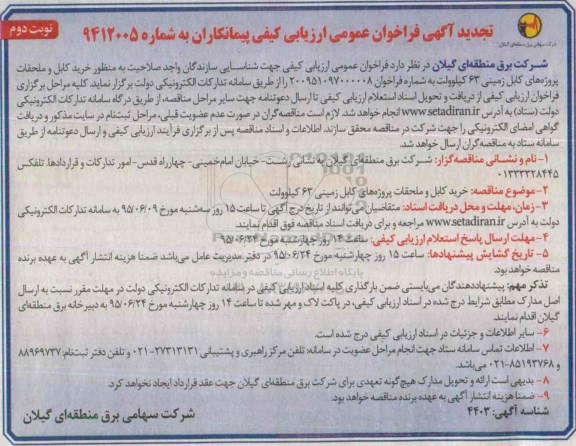 نوبت دوم
تجدید آگهی فراخوان عمومی ارزیابی کیفی پیمانکاران به شماره ۹۴۱۲۰۰۵
شرکت سهامی برق منطقه‌ای گیلان
شرکت برق منطقه‌ای گیلان در نظر دارد فراخوان عمومی ارزیابی کیفی جهت شناسایی سازندگان واجد صلاحیت به منظور خرید کابل و ملحقات
پروژه‌های کابل زمینی ۶۳ کیلوولت به شماره فراخوان ۲۰۰۹۵۱۰۹۷۰۰۰۰۰۸ را از طریق سامانه تدارکات الکترونیکی دولت برگزار نماید. کلیه مراحل برگزاری
فراخوان ارزیابی کیفی از دریافت و تحویل اسناد استعلام ارزیابی کیفی تا ارسال دعوتنامه جهت سایر مراحل مناقصه، از طریق درگاه سامانه تدارکات الکترونیکی
دولت (ستاد) به آدرس www.setadiran.ir انجام خواهد شد. لازم است مناقصه‌گران در صورت عدم عضویت قبلی، مراحل ثبت‌نام در سایت مذکور و دریافت
گواهی امضای الکترونیکی را جهت شرکت در مناقصه محقق سازند. اطلاعات و اسناد مناقصه پس از برگزاری فرآیند ارزیابی کیفی و ارسال دعوتنامه از طریق
سامانه ستاد به مناقصه‌گران ارسال خواهد شد.
۱- نام و نشانی مناقصه‌گزار: شرکت برق منطقه‌ای گیلان به نشانی رشت- خیابان امام‌خمینی- چهارراه قدس- امور تدارکات و قراردادها. تلفکس
۰۱۳۳۳۳۲۸۴۴۵
۲- موضوع مناقصه: خرید کابل و ملحقات پروژه‌های کابل زمینی ۶۳ کیلوولت
۳- زمان، مهلت و محل دریافت اسناد: متقاضیان می‌توانند از تاریخ درج آگهی تا ساعت ۱۵ روز سه‌شنبه مورخ ۹۵/۰۶/۰۹ به سامانه تدارکات الکترونیکی
دولت به آدرس www.setadiran.ir مراجعه و برای دریافت اسناد مناقصه فوق اقدام نمایند.
۴- مهلت ارسال پاسخ استعلام ارزیابی کیفی: ساعت ۱۴ روز چهارشنبه مورخ ۹۵/۰۶/۲۴
۵- تاریخ گشایش پیشنهادها: ساعت ۱۵ روز چهارشنبه مورخ ۹۵/۰۶/۲۴ در دفتر مدیریت عامل می‌باشد ضمنا هزینه انتشار آگهی به عهده برنده
مناقصه خواهد بود.
تذکر مهم: پیشنهاددهندگان می‌بایستی ضمن بارگذاری کلیه اسناد ارزیابی کیفی در سامانه تدارکات الکترونیکی دولت در مهلت مقرر نسبت به ارسال
اصل مدارک مطابق شرایط درج شده در اسناد ارزیابی کیفی، در پاکت لاک و مهر شده تا ساعت ۱۴ روز چهارشنبه مورخ ۹۵/۰۶/۲۴ به دبیرخانه برق منطقه‌ای
گیلان اقدام نمایند.
۶- سایر اطلاعات و جزئیات در اسناد ارزیابی کیفی درج شده است.
۷- اطلاعات تماس سامانه ستاد جهت انجام مراحل عضویت در سامانه: تلفن مرکز راهبری و پشتیبانی ۲۷۳۱۳۱۳۱-۰۲۱ و تلفن دفتر ثبت‌نام: ۸۸۹۶۹۷۳۷
و ۸۵۱۹۳۷۶۸-۰۲۱ می‌باشد.
۸- بدیهی است ارائه و تحویل مدارک هیچ‌گونه تعهدی برای شرکت برق منطقه‌ای گیلان جهت عقد قرارداد ایجاد نخواهد کرد.
۹- ضمنا هزینه انتشار آگهی به عهده برنده مناقصه خواهد بود.
شناسه آگهی: ۴۴۰۳
شرکت سهامی برق منطقه‌ای گیلان
پایگاه اطلاع رسانی مناقصه و مزایده